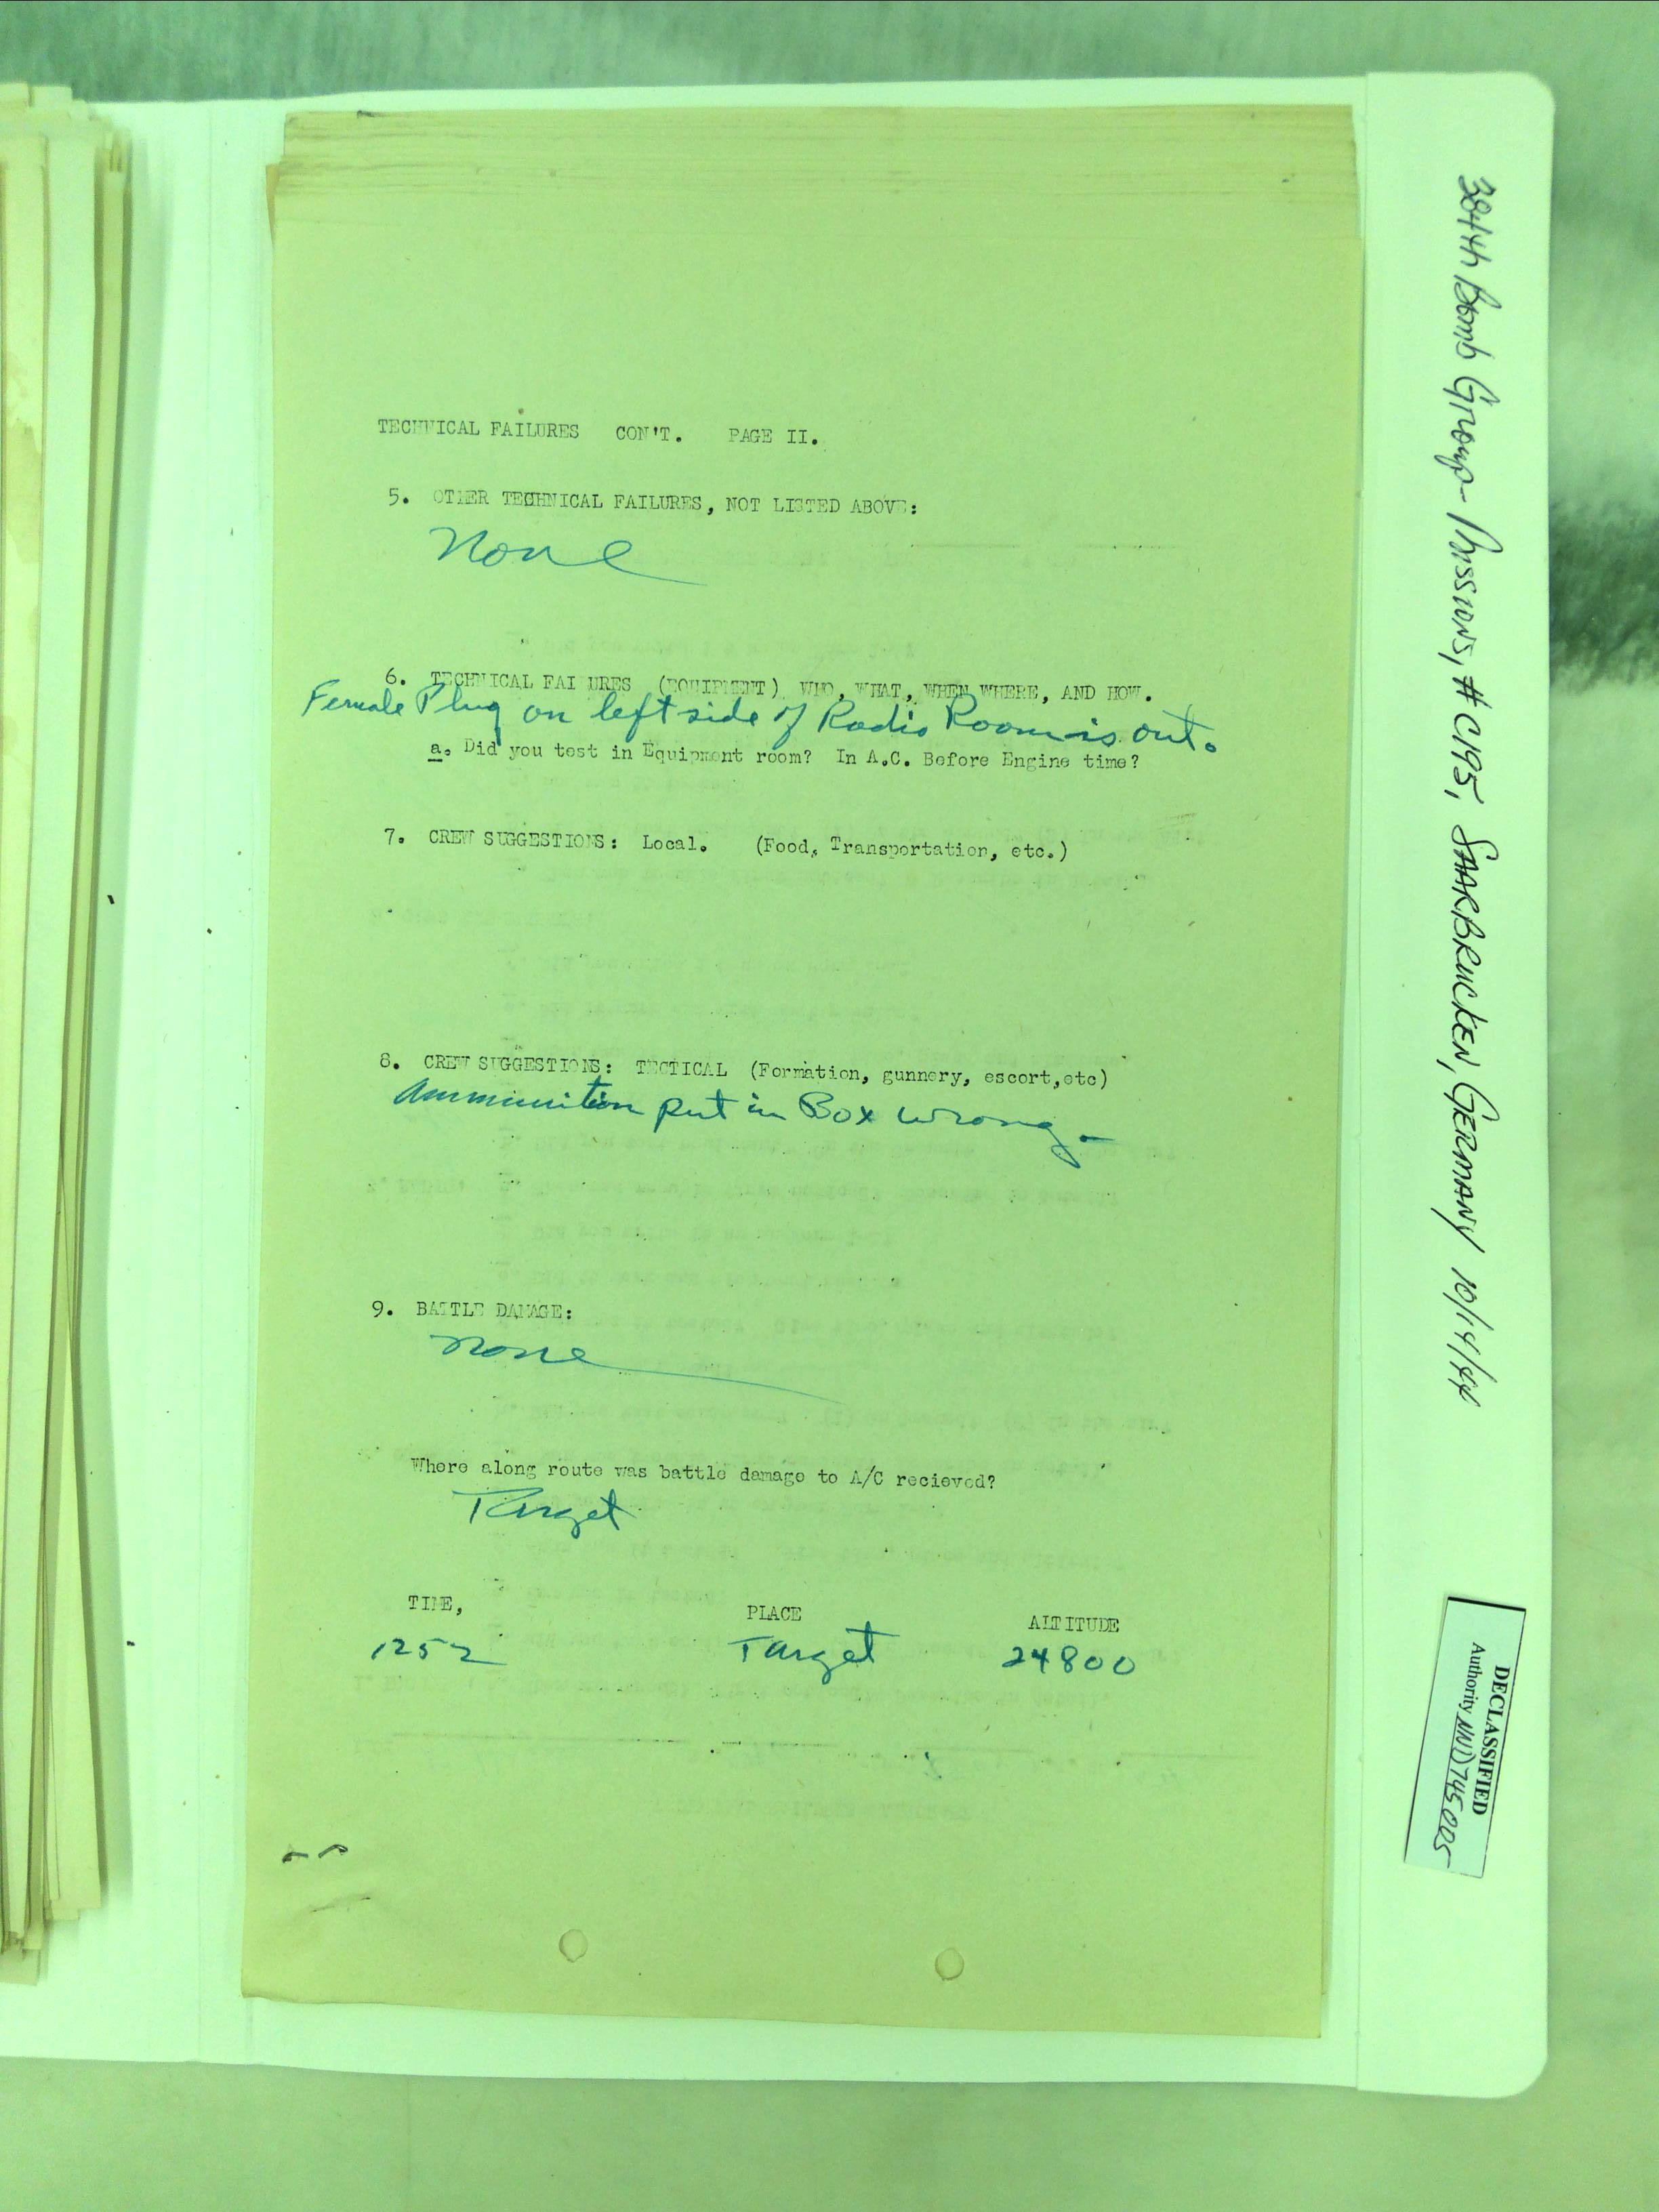 TECHNICAL FAILURES CON'T. PAGE II.
5. OTHER TECHNICAL FAILURES, NOT LISTED ABOVE:
None
6. TECHNICAL FAI URES (EQUIPMENT) WHO, WHAT, WHEN WHERE, AND HOW.
Female Plug on left side of Radio Room is out.
a. Did you test in Equipment room? In A.C. Before Engine time?
7. CREW SUGGESTIONS: Local. (Food, Transportation, etc.)
8. CREW SUGGESTIONS: TECTICAL (Formation, gunnery, escort,etc)
Ammunition put in Box wrong.
9. BATTLE DAMAGE:
None
Where along route was battle damage to A/C recieved?
Target
TIME, PLACE ALTITUDE
1252 Target 24800
384th Bomb Group - Missions, #C195, SAARBRUCKEN, GERMANY 10/14/44
DECLASSIFIED
Authority NND745005